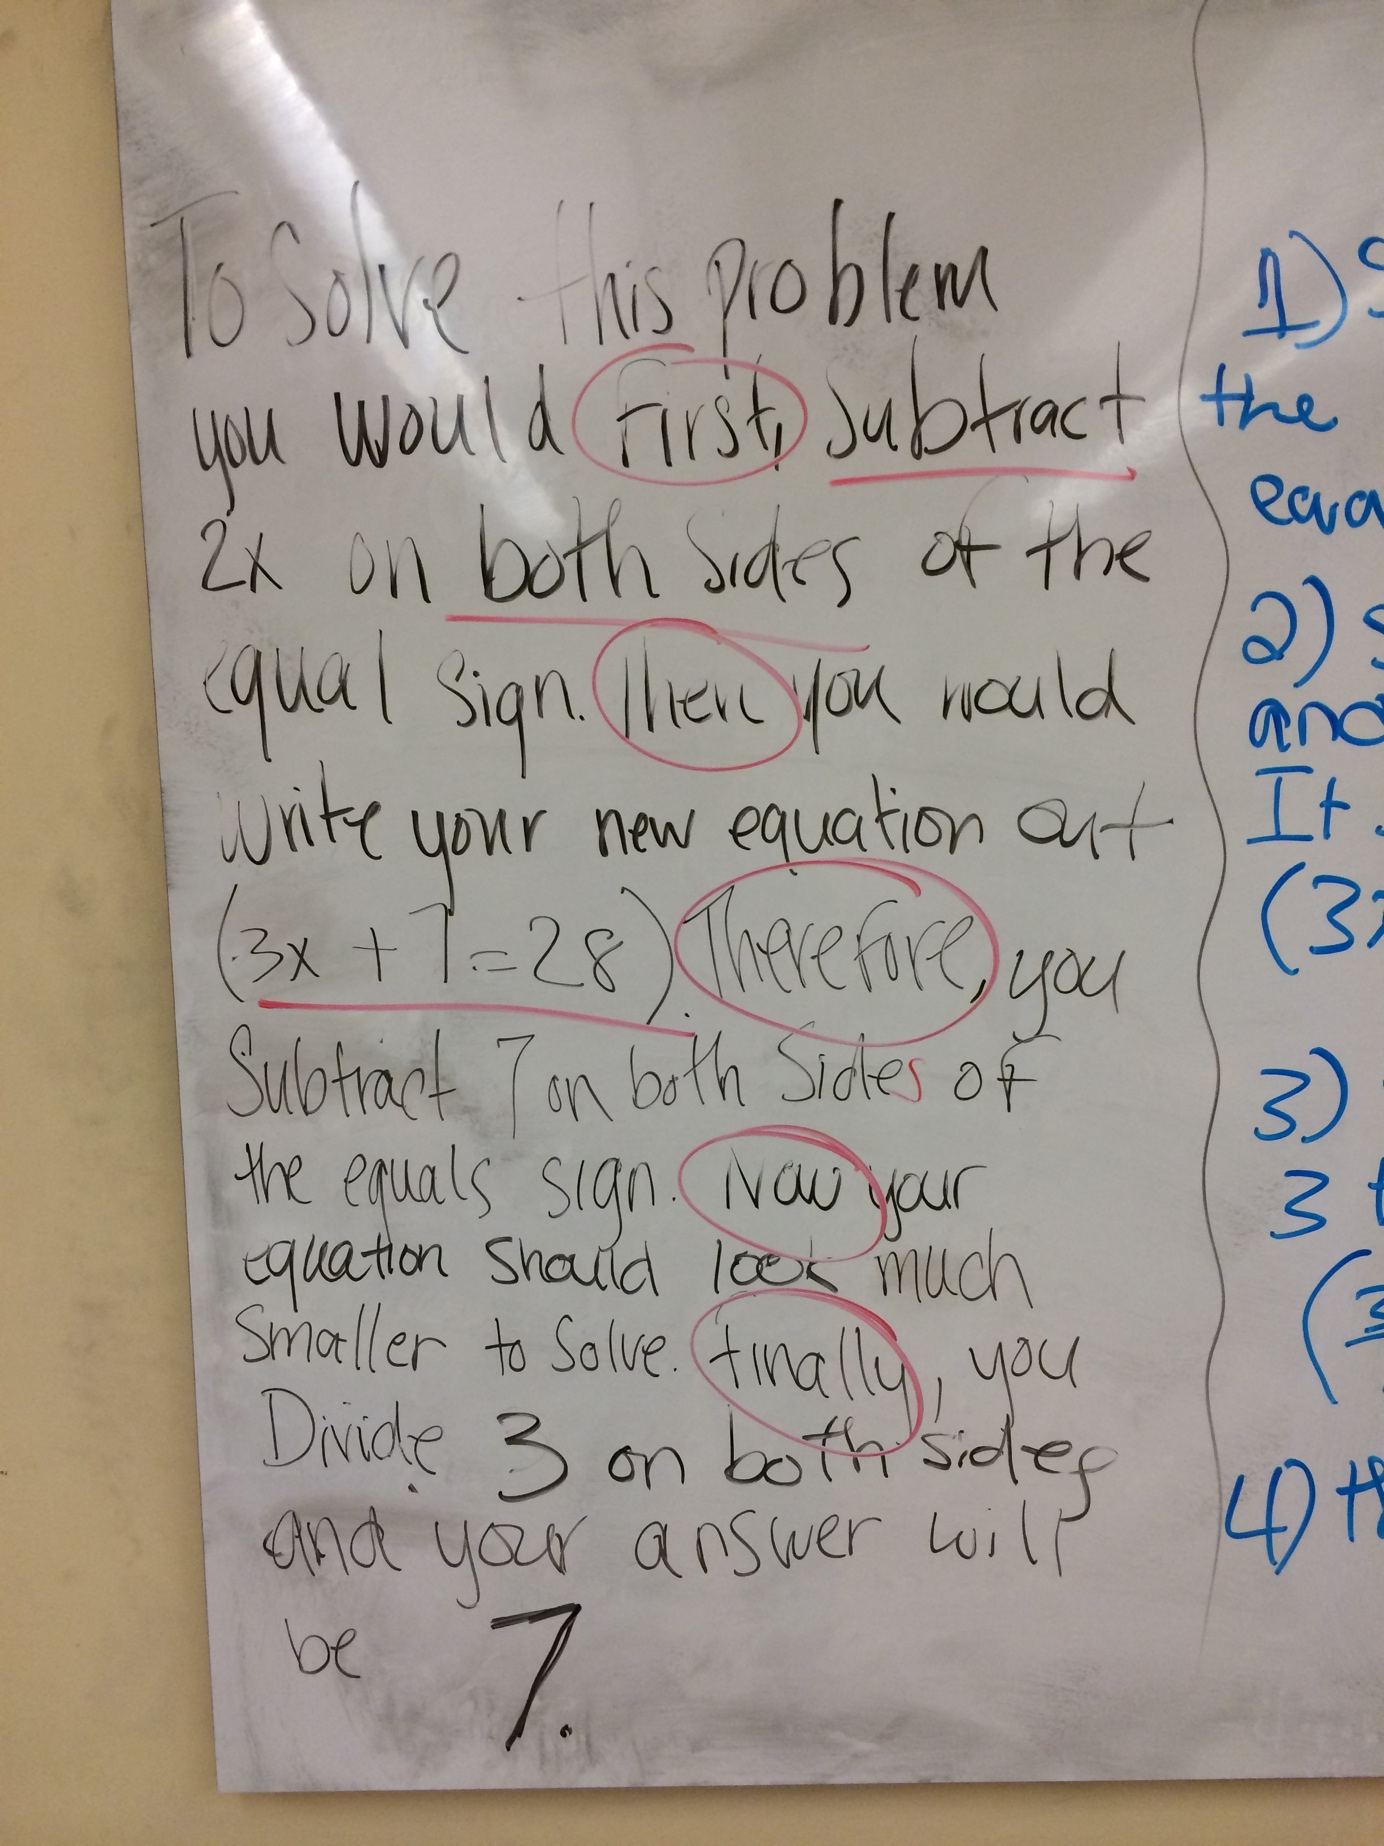 To Solve this problem
you would first, subtract
2x on both sides of the
equal sign. Then you would
write your new equation out
(3x + 7 = 28). Therefore, you
Subtract 7 on both Sides of
the equals sign. Now your
equation should look much
Smaller to Solve. finally, you
Divide 3 on both sides
and your answer will
be 7.
1)
the
2)
and
It
(3x
3)
3
(3
4)